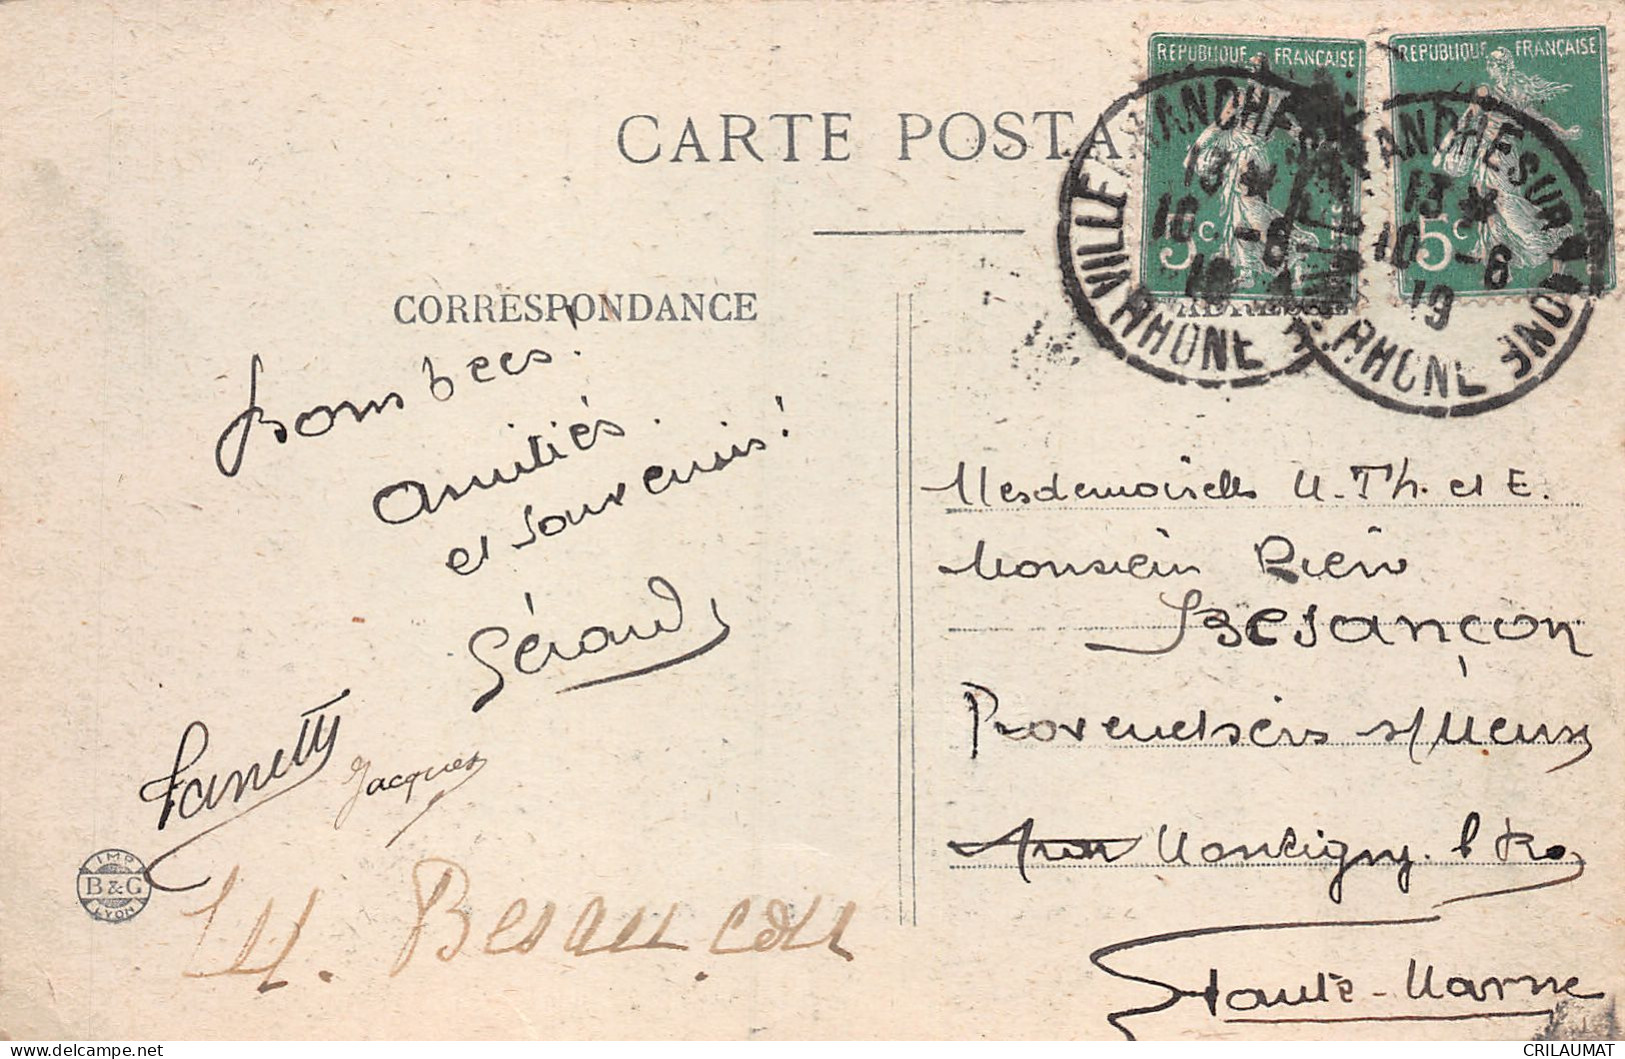 CARTE POSTA
REPUBLIQUE FRANÇAISE
REPUBLIQUE FRANÇAISE
5c
5c
VILLEFRANCHE SUR
13 *
10 -6
19
RHÔNE
ANCHE SUR SAONE
13 *
10 -6
19
RHONE
CORRESPONDANCE
ADRESSE
amitiés.
et souvenirs!
Gérard
Fanetty
Jacques
M. Besançon
IMP
B & G
LYON
Mesdemoiselles M. Th. et E.
Monsieur
Besançon
s/ Meuse
Montigny. l Roi
Haute-Marne
CRILAUMAT